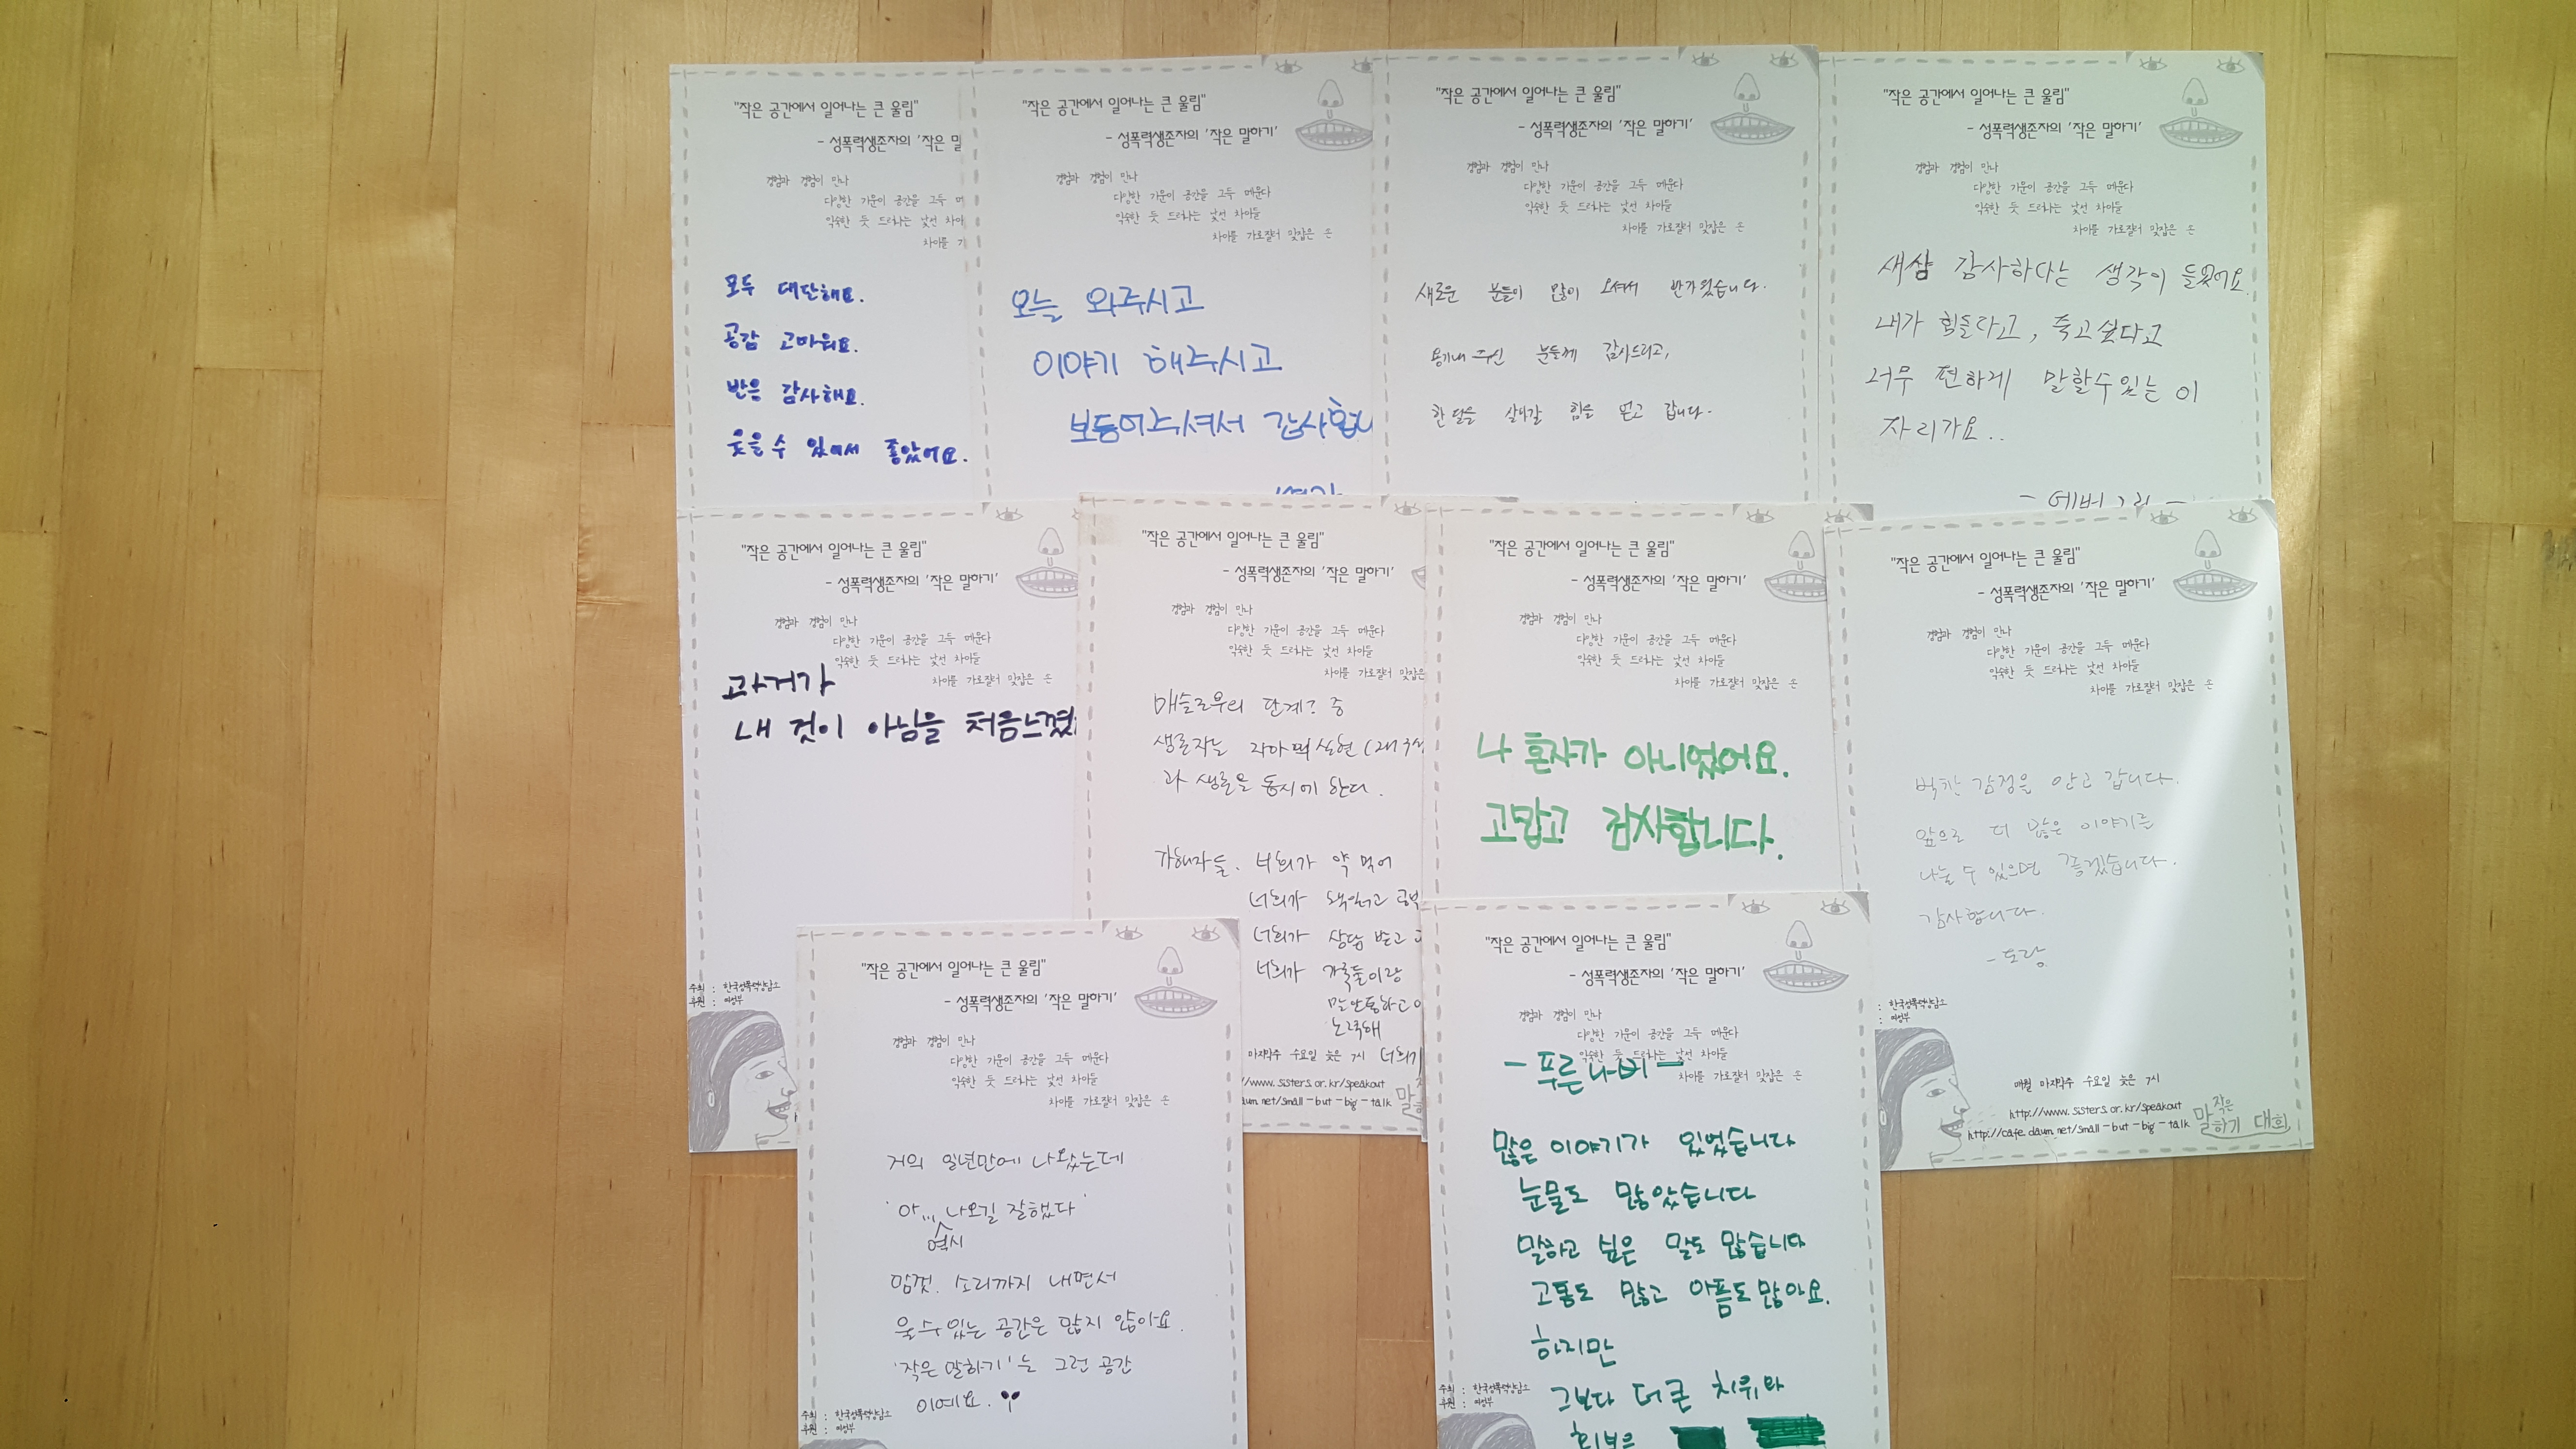 "작은 공간에서 일어나는 큰 울림"
- 성폭력생존자의 '작은 말
경험과 경험이 만나
다양한 기운이 공간을 그득 메
익숙한 듯 드러나는 낯선 차이
차이를 가
모두 대단해요.
공감 고마워요.
반응 감사해요.
웃을 수 있어서 좋았어요.
"작은 공간에서 일어나는 큰 울림"
- 성폭력생존자의 '작은 말하기'
경험과 경험이 만나
다양한 기운이 공간을 그득 메운다
익숙한 듯 드러나는 낯선 차이들
차이를 가로질러 맞잡은 손
오늘 와주시고
이야기 해주시고
보듬어주셔서 감사합니
"작은 공간에서 일어나는 큰 울림"
- 성폭력생존자의 '작은 말하기'
경험과 경험이 만나
다양한 기운이 공간을 그득 메운다
익숙한 듯 드러나는 낯선 차이들
차이를 가로질러 맞잡은 손
새로운 분들이 많이 오셔서 반가웠습니다.
용기내 주신 분들께 감사드리고,
한 달을 살아갈 힘을 얻고 갑니다.
"작은 공간에서 일어나는 큰 울림"
- 성폭력생존자의 '작은 말하기'
경험과 경험이 만나
다양한 기운이 공간을 그득 메운다
익숙한 듯 드러나는 낯선 차이들
차이를 가로질러 맞잡은 손
새삼 감사하다는 생각이 들었어요.
내가 힘들다고, 죽고싶다고
너무 편하게 말할수있는 이
자리가요..
- 에버그린 -
"작은 공간에서 일어나는 큰 울림"
- 성폭력생존자의 '작은 말하기'
경험과 경험이 만나
다양한 기운이 공간을 그득 메운다
익숙한 듯 드러나는 낯선 차이들
차이를 가로질러 맞잡은 손
과거가
내 것이 아님을 처음느꼈
주최 : 한국성폭력상담소
후원 : 여성부
"작은 공간에서 일어나는 큰 울림"
- 성폭력생존자의 '작은 말하기'
경험과 경험이 만나
다양한 기운이 공간을 그득 메운다
익숙한 듯 드러나는 낯선 차이들
차이를 가로질러 맞잡은
매슬로우의 단계? 중
생존자는 자아 실현 (재구성
과 생존을 동시에 한다.
가해자들. 너희가 약 먹어
너희가 책읽고 공부
너희가 상담 받고
너희가 가족들이랑
말 안통하고
노력해
마지막주 수요일 늦은 7시 너희가
/www.sisters.or.kr/speakout
aum.net/small-but-big-talk
"작은 공간에서 일어나는 큰 울림"
- 성폭력생존자의 '작은 말하기'
경험과 경험이 만나
다양한 기운이 공간을 그득 메운다
익숙한 듯 드러나는 낯선 차이들
차이를 가로질러 맞잡은 손
나 혼자가 아니었어요.
고맙고 감사합니다.
"작은 공간에서 일어나는 큰 울림"
- 성폭력생존자의 '작은 말하기'
경험과 경험이 만나
다양한 기운이 공간을 그득 메운다
익숙한 듯 드러나는 낯선 차이들
차이를 가로질러 맞잡은 손
벅찬 감정을 안고 갑니다.
앞으로 더 많은 이야기를
나눌 수 있으면 좋겠습니다.
감사합니다.
- 도랑
: 한국성폭력상담소
: 여성부
매월 마지막주 수요일 늦은 7시
http://www.sisters.or.kr/speakout
http://cafe.daum.net/small-but-big-talk
작은 말하기 대회
"작은 공간에서 일어나는 큰 울림"
- 성폭력생존자의 '작은 말하기'
경험과 경험이 만나
다양한 기운이 공간을 그득 메운다
익숙한 듯 드러나는 낯선 차이들
차이를 가로질러 맞잡은 손
거의 일년만에 나왔는데
'아... 역시 나오길 잘했다'
맘껏. 소리까지 내면서
울 수 있는 공간은 많지 않아요.
'작은 말하기'는 그런 공간
이예요.
주최 : 한국성폭력상담소
후원 : 여성부
"작은 공간에서 일어나는 큰 울림"
- 성폭력생존자의 '작은 말하기'
경험과 경험이 만나
다양한 기운이 공간을 그득 메운다
익숙한 듯 드러나는 낯선 차이들
차이를 가로질러 맞잡은 손
- 푸른나비 -
많은 이야기가 있었습니다
눈물도 많았습니다
말하고 싶은 말도 많습니다
고통도 많고 아픔도 많아요.
하지만
그보다 더 큰 치유와
회복은
주최 : 한국성폭력상담소
후원 : 여성부